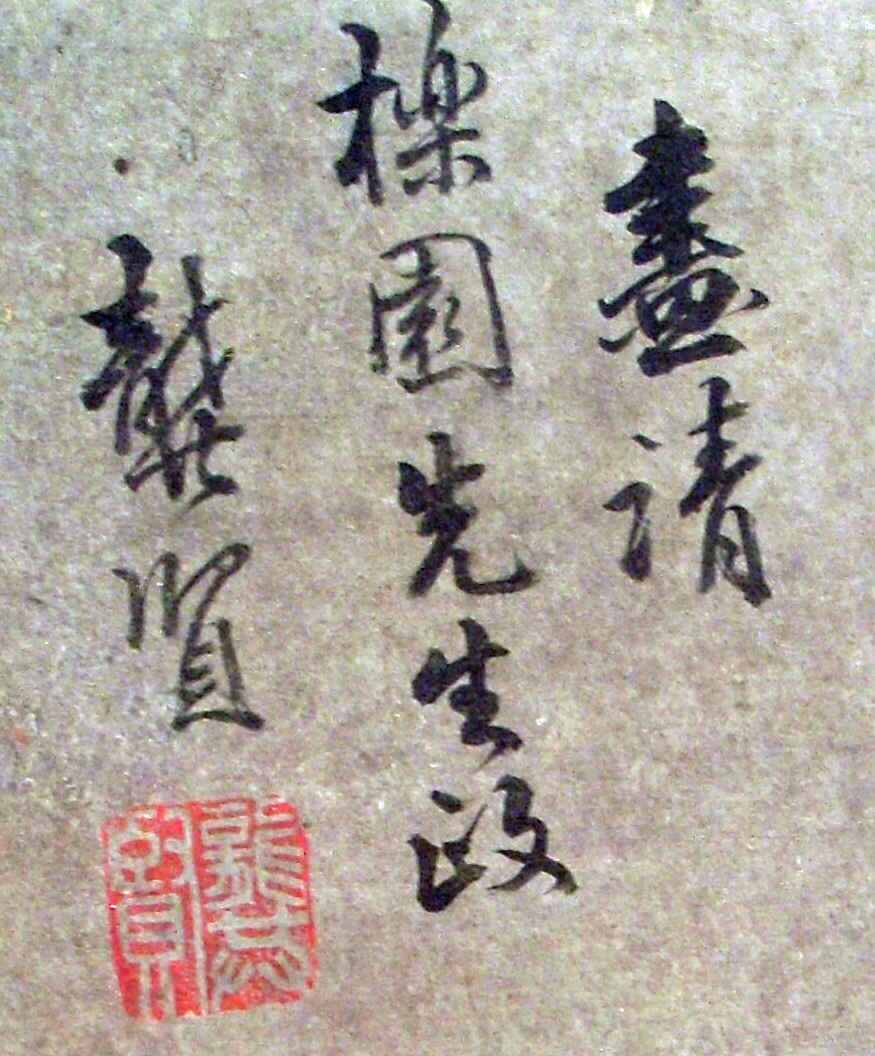 畫請
櫟園先生政
龔賢
龔賢